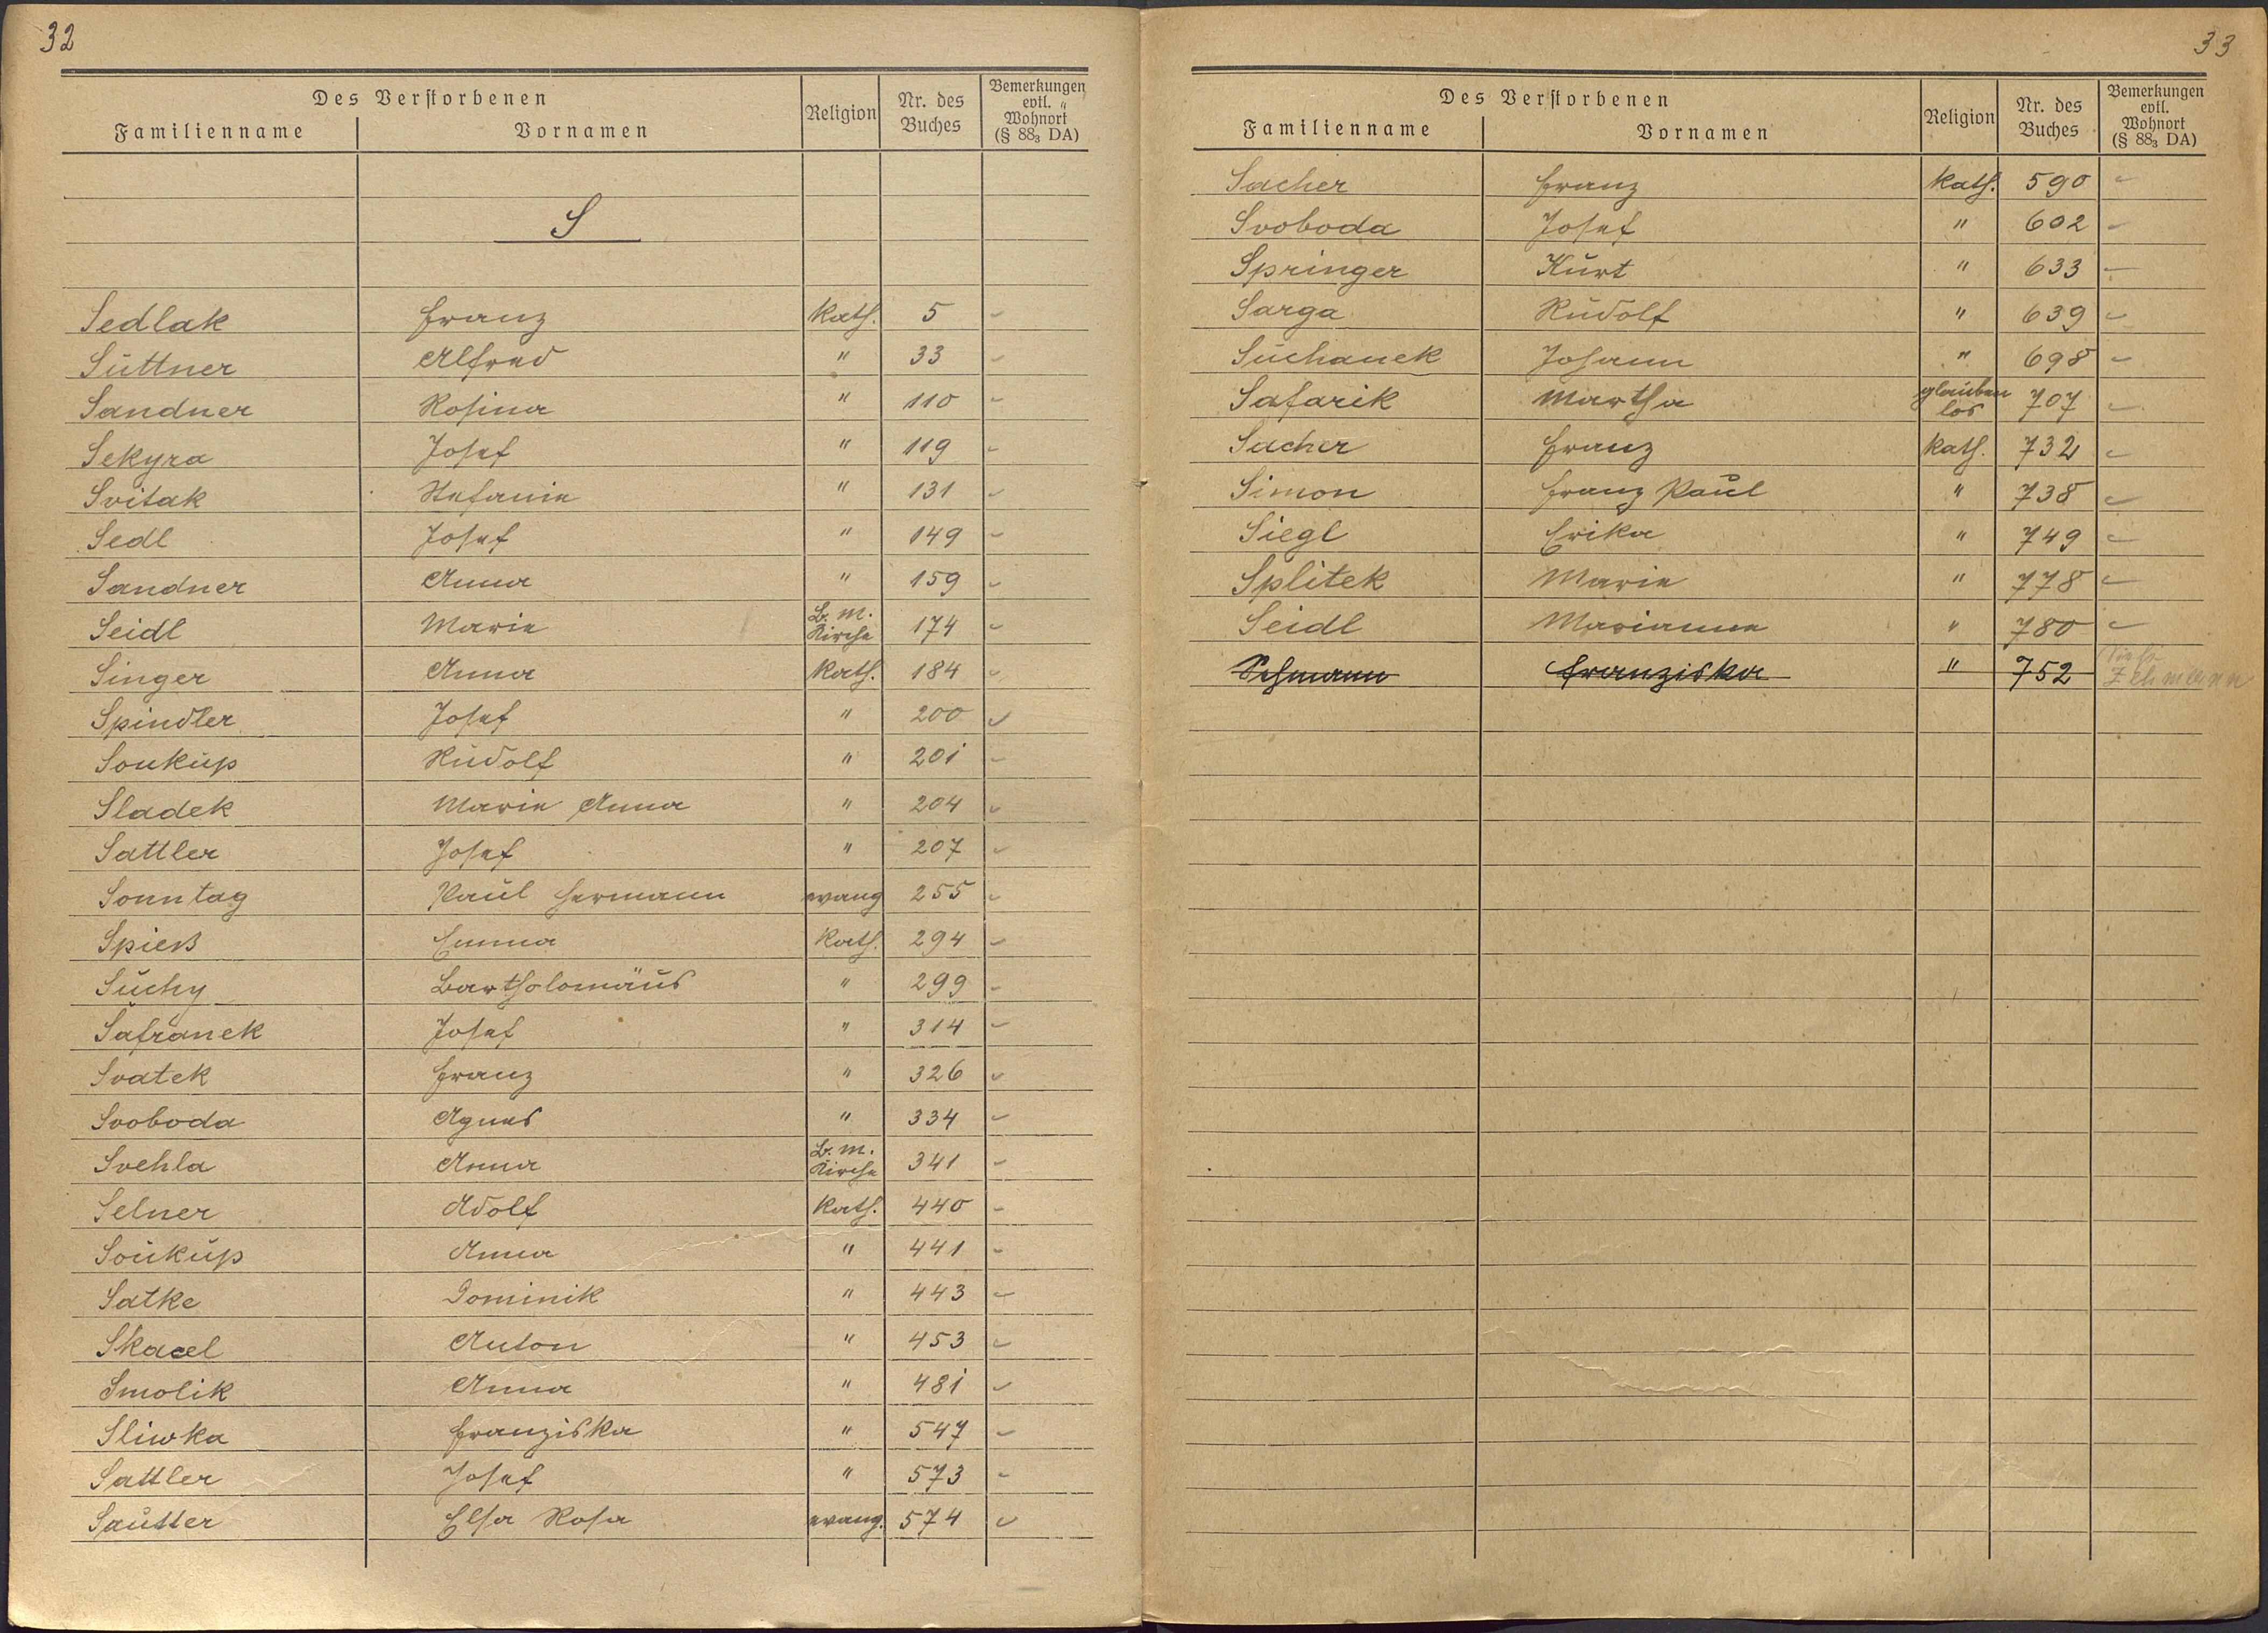 32
Des Verstorbenen
Familienname Vornamen Religion Nr. des Buches Bemerkungen evtl. Wohnort (§ 88₃ DA)
S
Sedlak Franz kath. 5
Suttner Alfred " 33
Sandner Rosina " 110
Sekyra Josef " 119
Svitak Stefanie " 131
Sedl Josef " 149
Sandner Anna " 159
Seidl Marie B. M. Kirche 174
Singer Anna kath. 184
Spindler Josef " 200
Soukup Rudolf " 201
Sladek Marie Anna " 204
Sattler Josef " 207
Sonntag Paul Hermann evang 255
Spieß Emma kath. 294
Suchy Bartholomäus " 299
Šafranek Josef " 314
Svatek Franz " 326
Svoboda Agnes " 334
Svehla Anna B. M. Kirche 341
Selner Adolf kath. 440
Soukup Anna " 441
Satke Dominik " 443
Skacel Anton " 453
Smolik Anna " 481
Sliwka Franziska " 547
Sattler Josef " 573
Sautter Elsa Rosa evang. 574
33
Des Verstorbenen
Familienname Vornamen Religion Nr. des Buches Bemerkungen evtl. Wohnort (§ 88₃ DA)
Sacher Franz kath. 590
Svoboda Josef " 602
Springer Kurt " 633
Sarga Rudolf " 639
Suchanek Johann " 698
Safarik Martha glauben los 707
Sacher Franz kath. 732
Simon Franz Paul " 738
Siegl Erika " 749
Splitek Marie " 778
Seidl Marianne " 780
Sehmann Franziska " 752 Siehe Zehmann